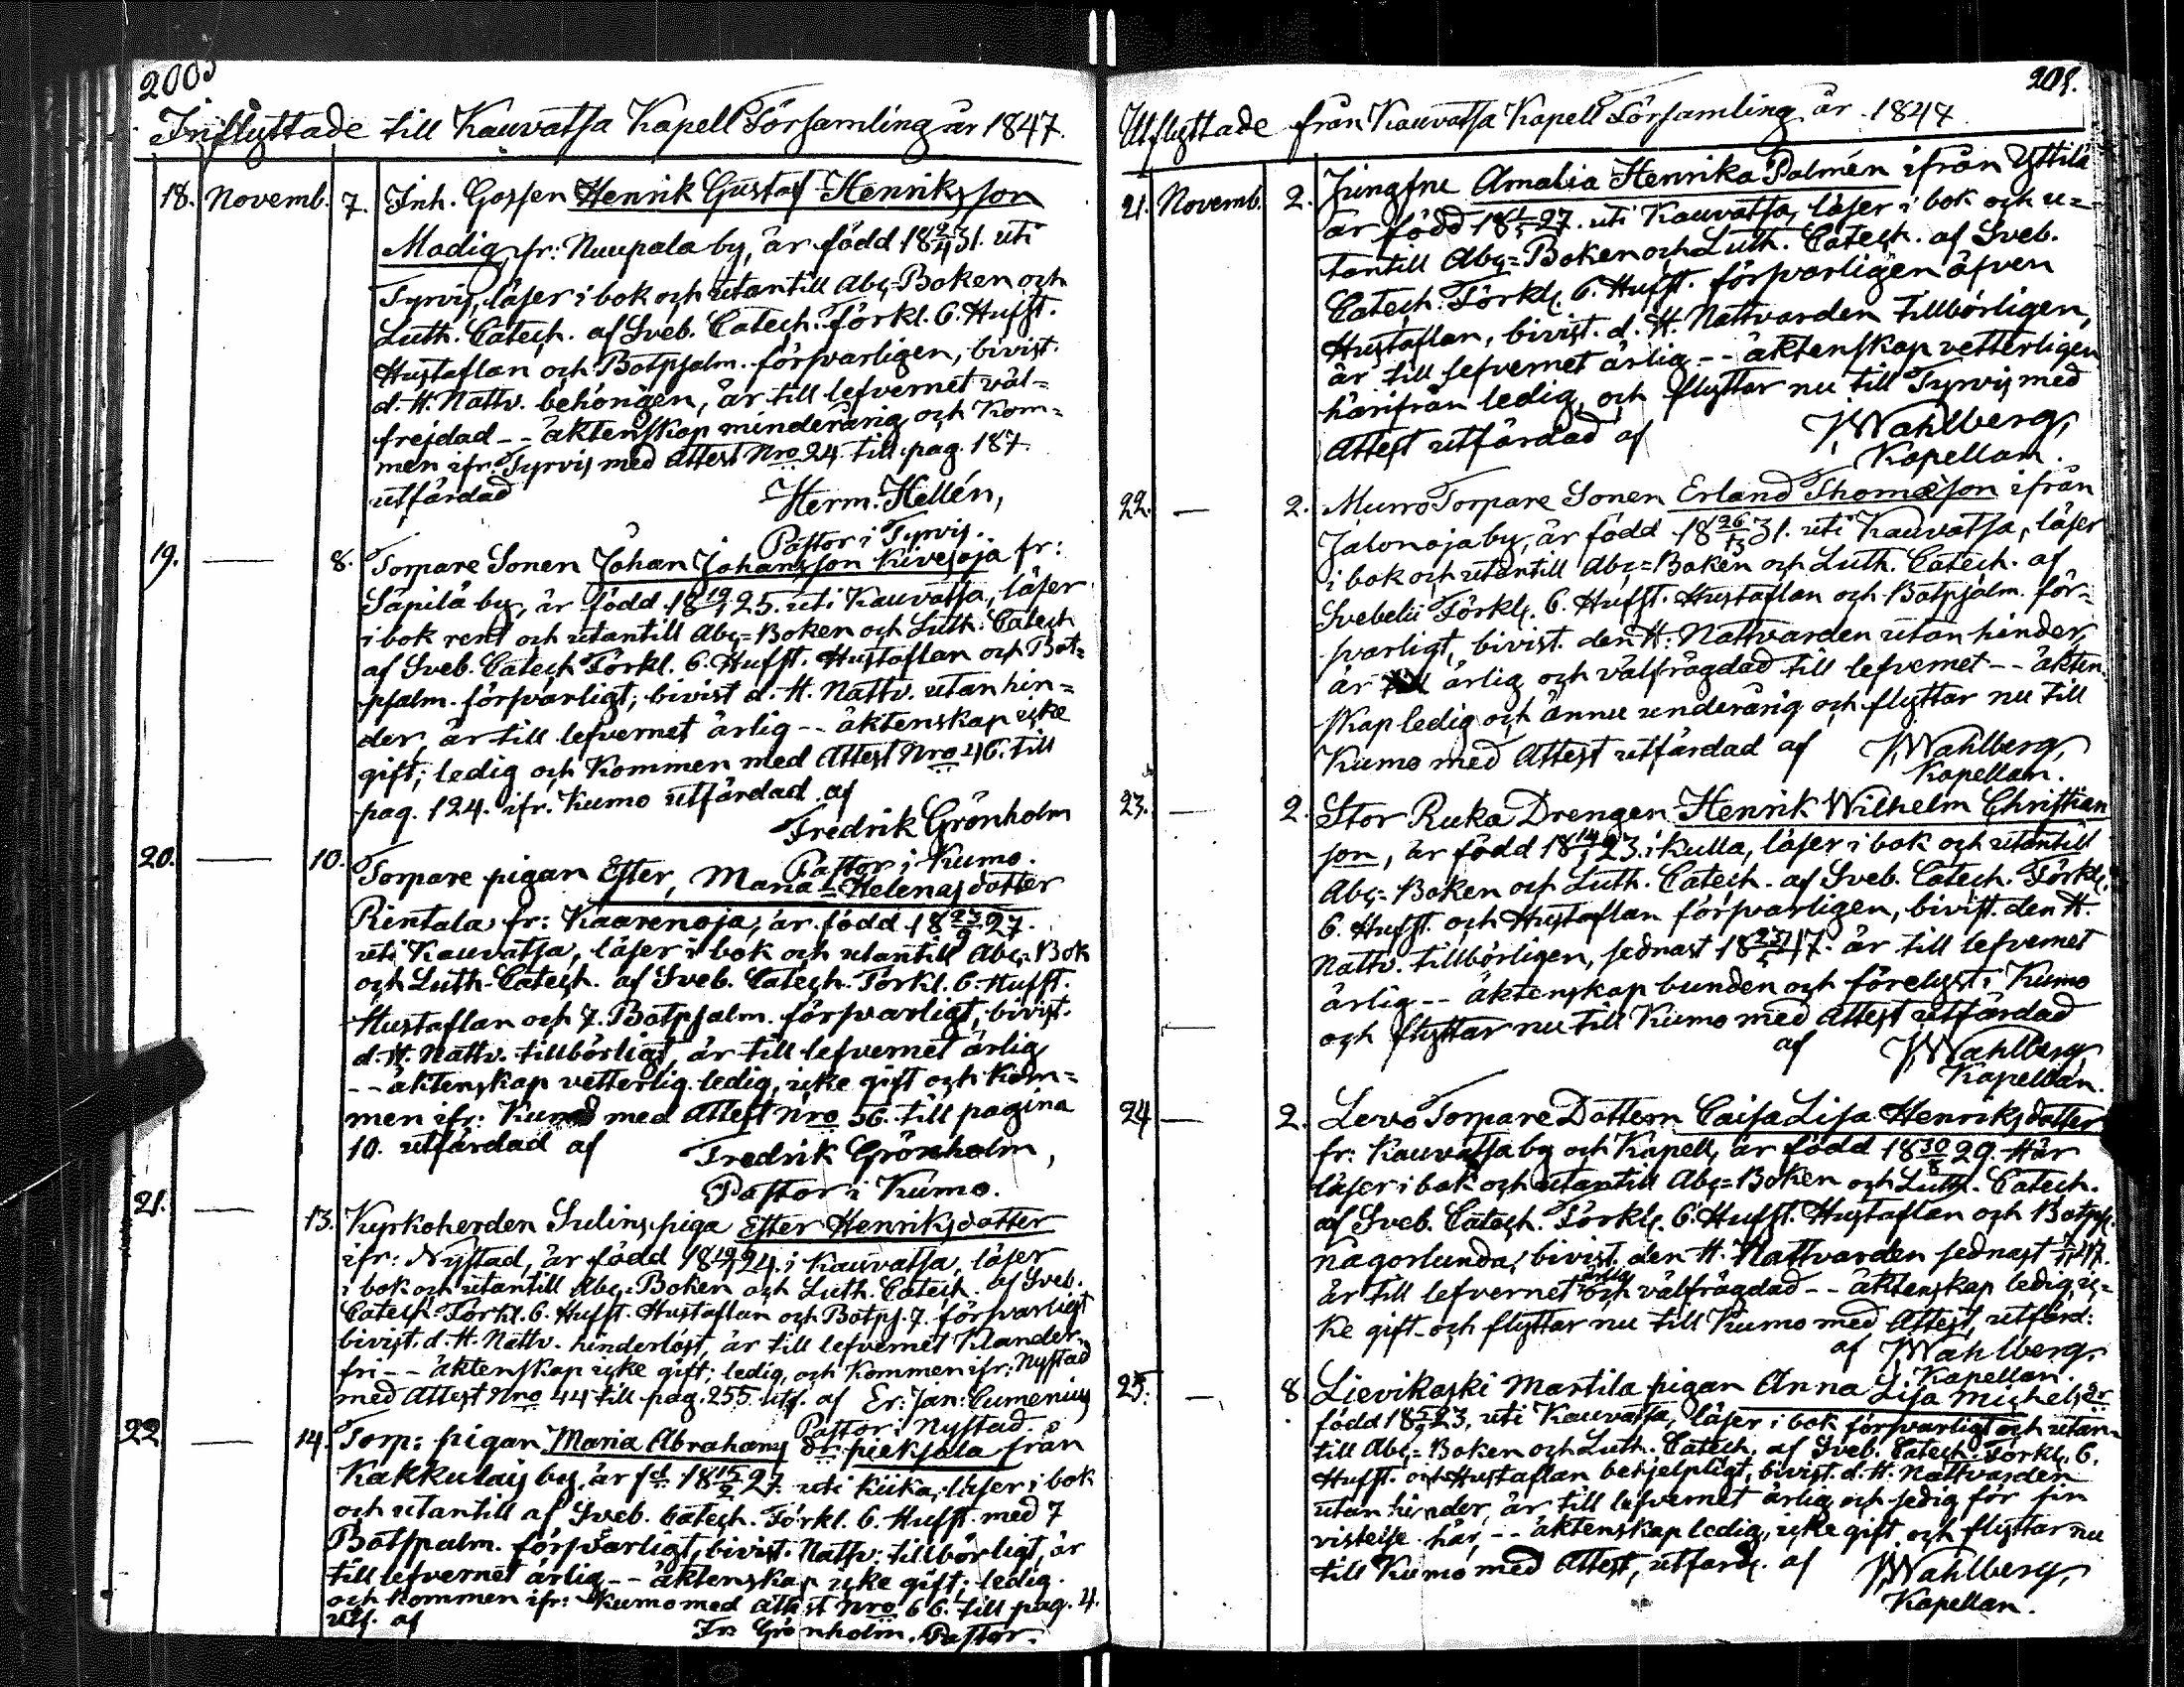 200
Inflyttade till Kauvatsa Kapell Församling år 1847.
18. Novemb. 7. Inh. Gossen Henrik Gustaf Henriksson
Madig, fr: Nuupala by, är född 18 31. uti
Tyrvis, läser i bok och utantill Abc=Boken och
Luth. Catech. af Sveb. Catech. förkl. C. Hufst.
Hustaflan och Botpsalm. försvarligen, bivist.
d. H. Nattv. behörigen, är till lefvernet väl=
frejdad -- äktenskap minderårig och Kom=
men ifr. Tyrvis med Attest Nro 24. till pag. 187.
utfärdad Herm. Hellén,
Pastor i Tyrvis.
19. — 8. Torpare Sonen Johan Johansson Kivesoja fr:
Säpilä by, är född 18 25. uti Kauvatsa, läser
i bok rent och utantill Abc=Boken och Luth. Catech
af Sveb. Catech Förkl. 6. Hufst. Hustaflan och Bot=
psalm. försvarligt; bivist d. H. Nattv. utan hin=
der, är till lefvernet ärlig -- äktenskap icke
gift; ledig och Kommen med Attest Nro 46. till
pag. 124. ifr. Kumo utfärdad af
Fredrik Grönholm
Pastor i Kumo.
20. — 10. Torpare pigan Ester, Maria Helenasdotter
Rintala, fr: Kaarenoja, är född 18 23/9 27.
uti Kauvatsa, läser i bok och utantill Abc=Bok
och Luth. Catech. af Sveb. Catech. Förkl. 6. Hufst.
Hustaflan och 7. Botpsalm. försvarligt, bivist.
d. H. Nattv. tillbörligt, är till lefvernet ärlig
-- äktenskap vetterlig. ledig, icke gift och Kom=
men ifr: Kumo med Attest Nro 56. till pagina
10. utfärdad af Fredrik Grönholm,
Pastor i Kumo.
21. — 13. Kyrkoherden Sulins piga Ester Henriksdotter
ifr: Nystad, är född 18 24. i Kauvatsa, läser
i bok och utantill Abc=Boken och Luth. Catech. af Sveb.
Catech. Förkl. 6. Hufst. Hustaflan och Botps. 7. försvarligt
bivist. d. H. Nattv. hinderlöst, är till lefvernet Klander
fri -- äktenskap icke gift; ledig, och Kommen ifr: Nystad
med Attest Nro 44 till pag. 255. utf. af Er: Jan: Cumenius
Pastor i Nystad.
22 — 14. Torp: pigan Maria Abrahams dr: pieksala från
Kakkulais by, är fd 18 15/2 27. uti Kiika, läser i bok
och utantill af Sveb. Catech. Förkl. 6. Hufst. med 7
Botspsalm. försvarligt, bivist. Nattv. tillbörligt, är
till lefvernet ärlig -- äktenskap icke gift; ledig.
och Kommen ifr: Kumo med attest Nro 66. till pag. 4.
utf. af Fr: Grönholm. Pastor.
201.
Utflyttade från Kauvatsa Kapell Församling år 1847
21. Novemb. 2. Jungfru Amalia Henrika Palmén ifrån Yttilä
är född 18 27. uti Kauvatsa, läser i bok och u=
tantill Abc=Boken och Luth. Catech. af Sveb.
Catech. Förkl. 6. Hufst. försvarligen äfven
Hustaflan, bivist. d. H. Nattvarden tillbörligen,
är till lefvernet ärlig -- äktenskap vetterligen
härifrån ledig, och flyttar nu till Tyrvis med
Attest utfärdad af J. Wahlberg,
Kapellan.
22. — 2. Murro Torpare Sonen Erland Thomæson ifrån
Jalonoja by, är född 18 31. uti Kauvatsa, läser
i bok och utantill Abc=Boken och Luth. Catech. af
Svebelii Förkl. 6. Hufst. Hustaflan och Botpsalm. för=
svarligt, bivist. den H. Nattvarden utan hinder,
är ärlig och välfrägdad till lefvernet -- äkten=
skap ledig och ännu underårig och flyttar nu till
Kumo med Attest utfärdad af J. Wahlberg,
Kapellan.
23. — 2. Stor Ruka Drengen Henrik Wilhelm Christian
son, är född 18 23. i Kulla, läser i bok och utantill
Abc=Boken och Luth. Catech. af Sveb. Catech. Förkl.
6. Hufst. och Hustaflan försvarligen, bivist. den H.
Nattv. tillbörligen, sednast 18 47. är till lefvernet
ärlig -- äktenskap bunden och förelyst i Kumo
och flyttar nu till Kumo med Attest utfärdad
af J. Wahlberg,
Kapellan.
24 — 2. Levo Torpare Dottern Caisa Lisa Henriksdotter
fr: Kauvatsa by och Kapell, är född 18 30/8 29. Här
läser i bok och utantill Abc=Boken och Luth. Catech.
af Sveb. Catech. Förkl. 6. Hufst. Hustaflan och Botps.
någorlunda, bivist. den H. Nattvarden sednast 47.
är till lefvernet ärlig och välfrägdad -- äktenskap ledig, ic=
ke gift och flyttar nu till Kumo med Attest, utfärd:
af J. Wahlberg.
Kapellan.
25. — 8. Lievikoski Martila pigan Anna Lisa Michels dr
född 18 23, uti Kauvatsa, läser i bok försvarligt och utan=
till Abc=Boken och Luth. Catech. af Sveb. Catech. Förkl. 6.
Hufst. och Hustaflan behjelpligt, bivist. d. H. Nattvarden
utan hinder, är till lefvernet ärlig och sedig för sin
vistelse här, -- äktenskap ledig, icke gift och flyttar nu
till Kumo med Attest, utfärd. af J. Wahlberg,
Kapellan.